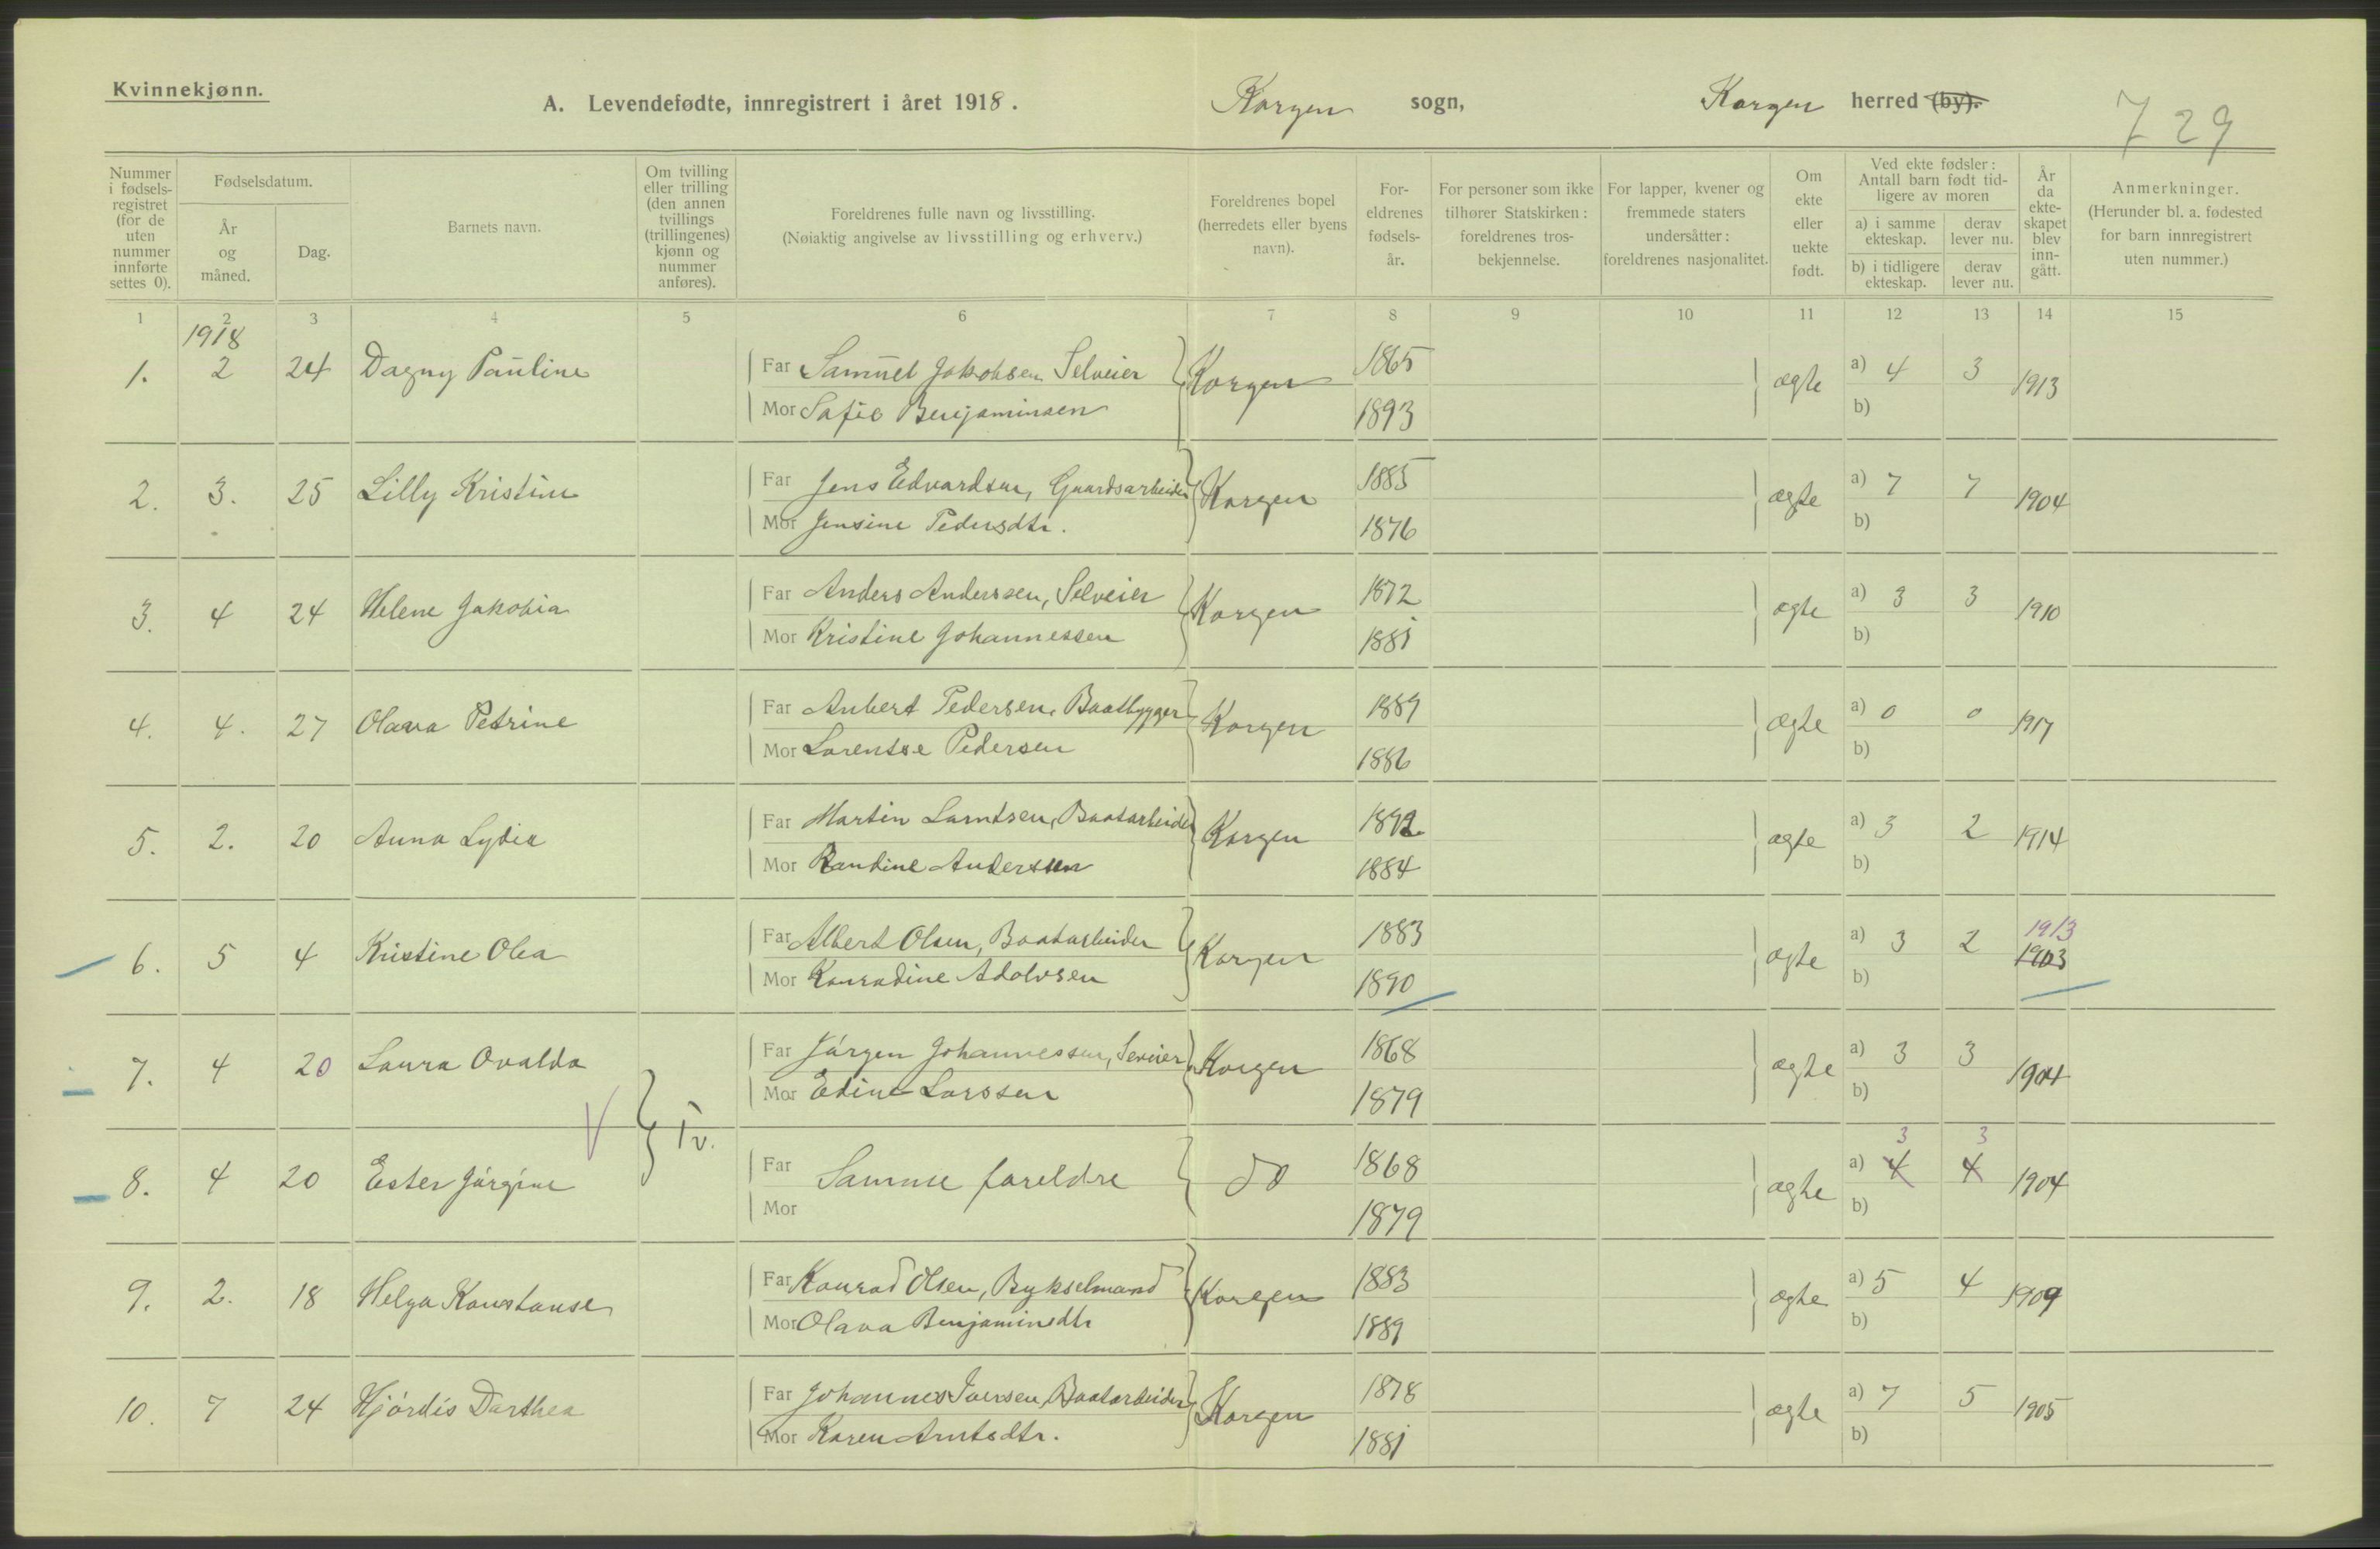 Kvinnekjønn.
A. Levendefødte, innregistrert i året 1918. Korgen sogn, Korgen herred (by).
729
Nummer i fødsels-registret (for de uten nummer innførte settes 0).
Fødselsdatum.
År og måned.
Dag.
Barnets navn.
Om tvilling eller trilling (den annen tvillings (trillingenes) kjønn og nummer anføres).
Foreldrenes fulle navn og livsstilling. (Nøiaktig angivelse av livsstilling og erhverv.)
Foreldrenes bopel (herredets eller byens navn).
For-eldrenes fødsels-år.
For personer som ikke tilhører Statskirken: foreldrenes tros-bekjennelse.
For lapper, kvener og fremmede staters undersåtter: foreldrenes nasjonalitet.
Om ekte eller uekte født.
Ved ekte fødsler: Antall barn født tid-ligere av moren
a) i samme ekteskap. derav lever nu.
b) i tidligere ekteskap. derav lever nu.
År da ekte-skapet blev inn-gått.
Anmerkninger. (Herunder bl. a. fødested for barn innregistrert uten nummer.)
1 2 3 4 5 6 7 8 9 10 11 12 13 14 15
1918
1. 2 24 Dagny Pauline Far Samuel Jakobsen Selveier Korgen 1865 ægte a) 4 3 1913
Mor Sofie Benjaminsen 1893 b)
2. 3. 25 Lilly Kristine Far Jens Edvardsen, Gaardsarbeider Korgen 1885 ægte a) 7 7 1904
Mor Jensine Pedersdtr. 1876 b)
3. 4 24 Helene Jakobia Far Anders Anderssen, Selveier Korgen 1872 ægte a) 3 3 1910
Mor Kristine Johannessen 1881 b)
4. 4. 27 Olava Petrine Far Anbert Pedersen, Baatbygger Korgen 1889 ægte a) 0 0 1917
Mor Lorentse Pedersen 1886 b)
5. 2. 20 Anna Lydia Far Martin Larntsen, Baatarbeider Korgen 1892 ægte a) 3 2 1914
Mor Randine Anderssen 1884 b)
6. 5 4 Kristine Olea Far Albert Olsen, Baatarbeider Korgen 1883 ægte a) 3 2 1913 1903
Mor Konradine Adolvsen 1890 b)
7. 4 20 Laura Ovalda Far Jørgen Johannessen, Seveier Korgen 1868 ægte a) 3 3 1904
Mor Edine Larssen 1879 b)
Tv.
8. 4 20 Ester Jørgine Far Samme foreldre do 1868 ægte a) 4 3 4 3 1904
Mor 1879 b)
9. 2. 18 Helga Konstanse Far Konrad Olsen, Bykselmand Korgen 1883 ægte a) 5 4 1909
Mor Olava Benjaminsdtr 1889 b)
10. 7 24 Hjørdis Darthea Far Johannes Iversen, Baatarbeider Korgen 1878 ægte a) 7 5 1905
Mor Karen Arntsdtr. 1881 b)